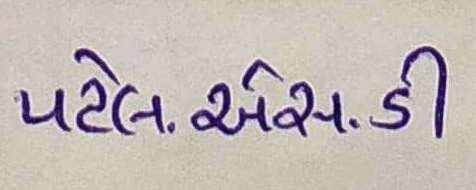 પટેલ. એસ. ડી